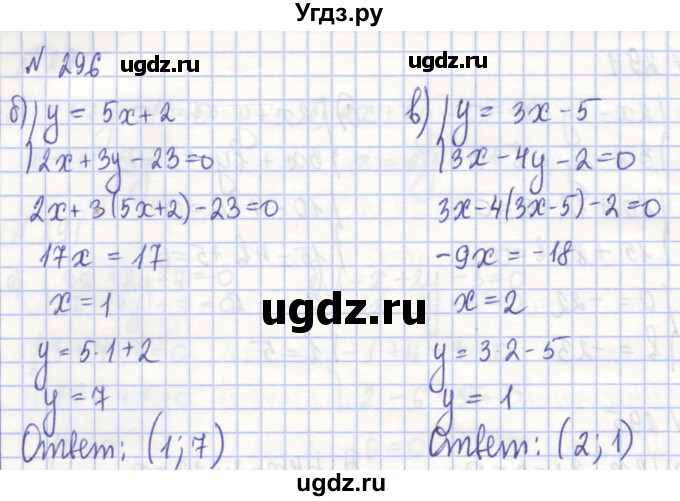 Угдз.ру
№ 296
ugdz.ru
ugdz.ru
б) { y = 5x + 2
2x + 3y - 23 = 0
2x + 3(5x+2) - 23 = 0
17x = 17
x = 1
y = 5·1 + 2
y = 7
Ответ: (1; 7)
в) { y = 3x - 5
3x - 4y - 2 = 0
3x - 4(3x-5) - 2 = 0
-9x = -18
x = 2
y = 3·2 - 5
y = 1
Ответ: (2; 1)
ugdz.ru
ugdz.ru
ugdz.ru